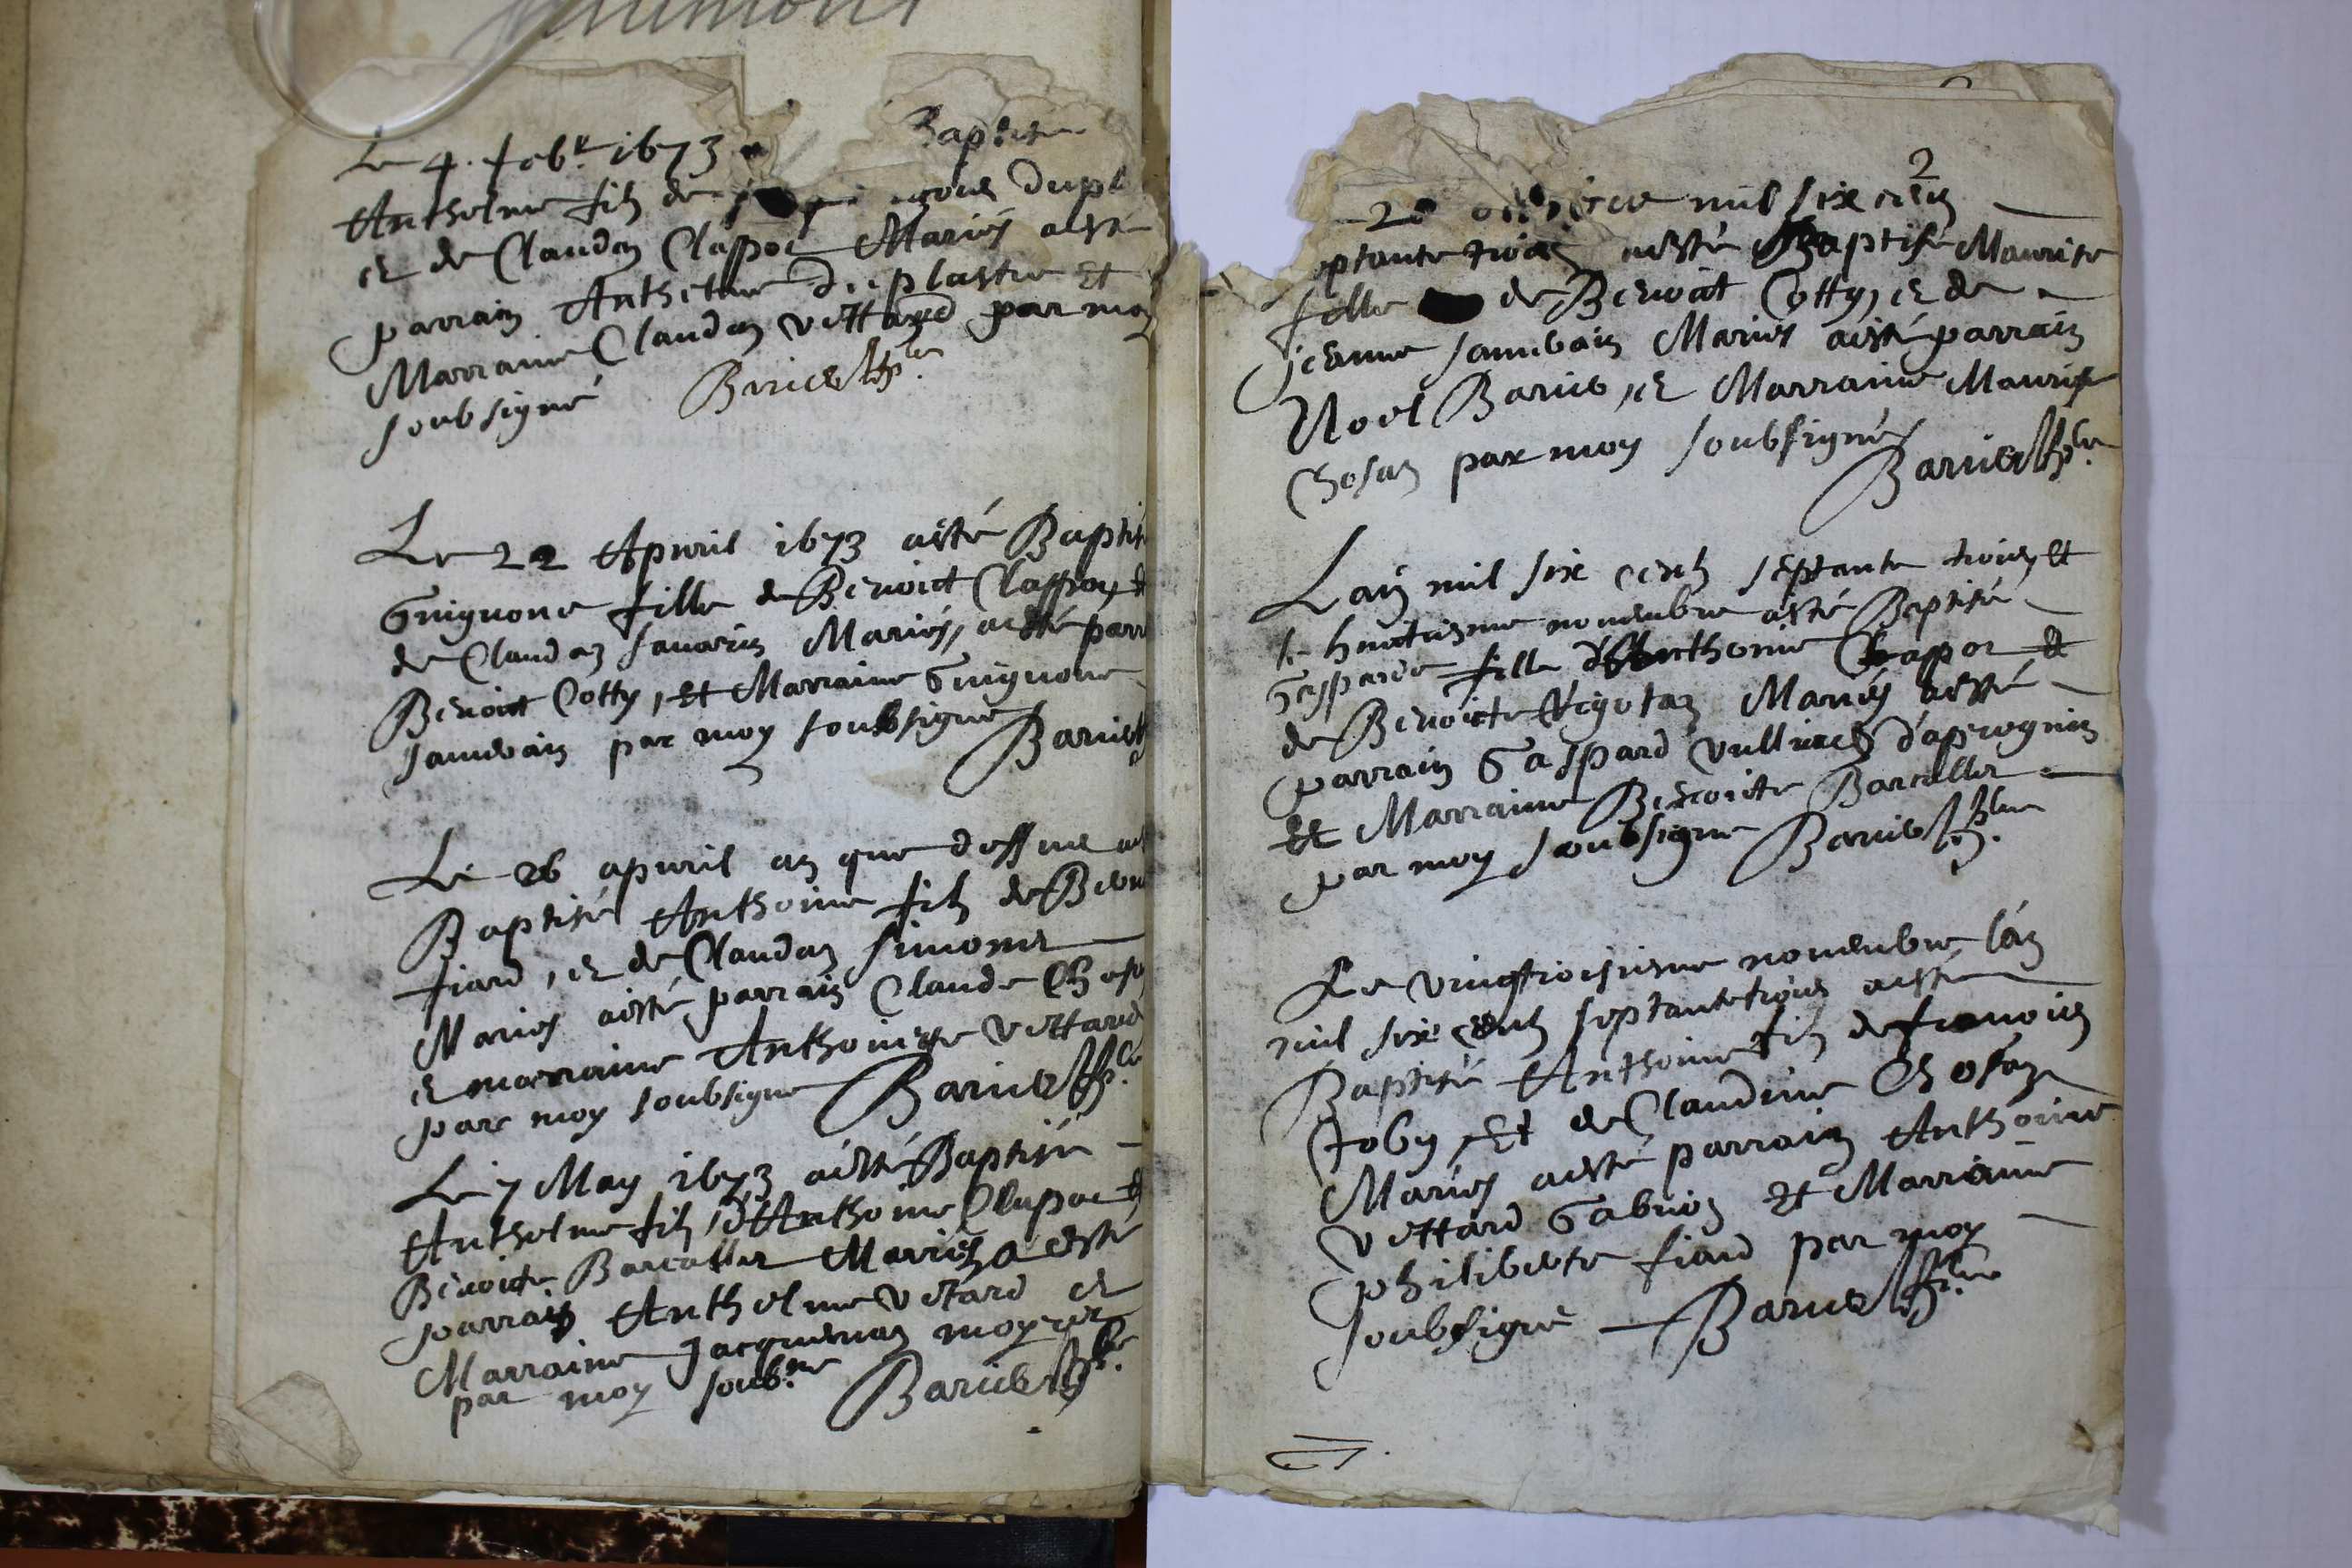 Le 4. feb.r 1673 Baptisé
Anthelme fils de
et de Claudaz Clappot Mariés a esté
parrain Anthelme Duplastre Et
Marraine Claudaz vettard par moy
soubsigné
Le 22 Apvril 1673 a esté Baptisé
Guigone fille de Benoict Clappoz &
de Claudaz Sauvarin Mariés, a esté parr
Benoict Cotty, Et Marraine Guigone
Jambain par moy soubsigné
Le 26 apvril an que dessus
Baptisé Anthoine fils de Beno
fiard, et de Claudaz Simonet
Mariés a esté parrain Claude Chosa
et marraine Anthoinette vettard
par moy soubsigné
Le 7 May 1673 a esté Baptisé
Anthelme fils d'Anthoine Clapot &
Benoite Barcallet Mariés a esté
parrain Anthelme vetard et
Marraine Jacquemaz moyret
par moy soub.né
2
mil six cens
eptante trois a esté Baptisé Maurise
fille de Benoict Cotty, et de
jeanne Jambain Mariés a esté parrain
Noel, et Marraine Maurise
Chosaz par moy soubsigné
Lan mil six cents septante trois et
le huictiesme novembre a esté Baptisé
Gasparde fille d'Anthoine Clapot &
de Benoicte Mariés a esté
parrain Gaspard d'aprognin
Et Marraine Benoite Barcallet
par moy soubsigné
Le vingtroisiesme novembre l'an
mil six cents septantetrois a esté
Baptisé Anthoine fils de francois
Goby, Et de Claudine Chosaz
Mariés a esté parrain Anthoine
vettard Et Marraine
philiberte fiard par moy
soubsigné